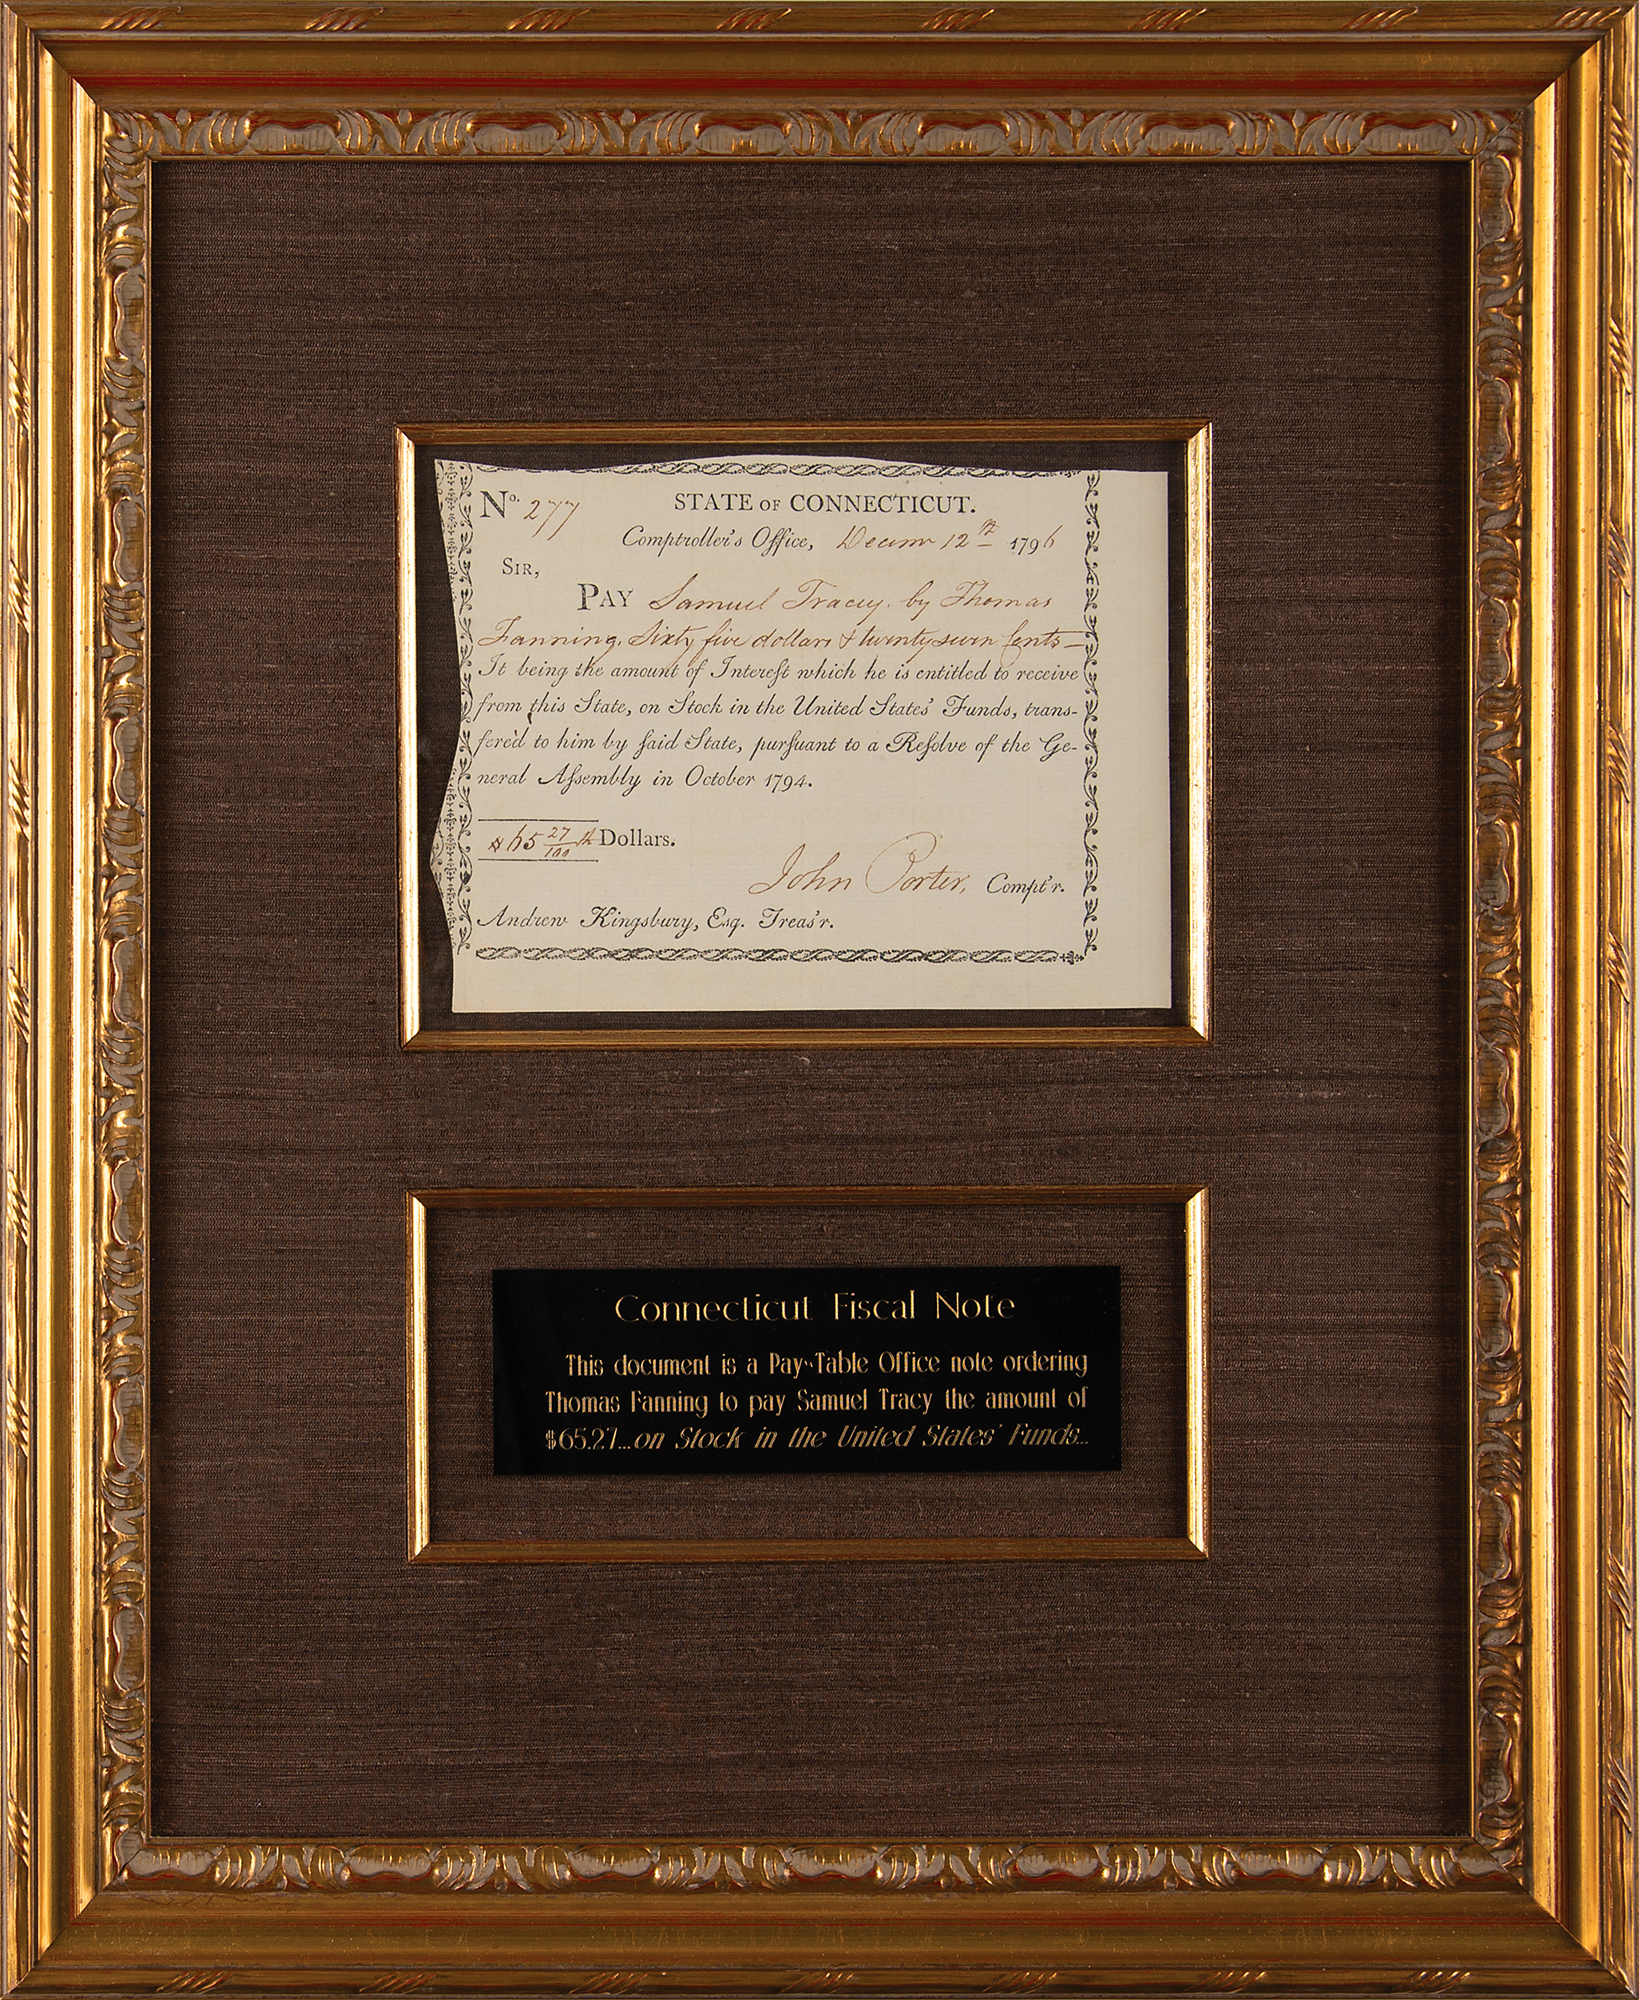 No. 277 STATE OF CONNECTICUT.
Comptroller's Office, Decemr 12th 1796
SIR,
PAY Samuel Tracey. by Thomas
Fanning. Sixty five dollars & twenty seven Cents—
It being the amount of Intereſt which he is entitled to receive
from this State, on Stock in the United States' Funds, trans-
fered to him by ſaid State, purſuant to a Reſolve of the Ge-
neral Aſsembly in October 1794.
$65 27/100 th Dollars.
John Porter, Compt'r.
Andrew Kingsbury, Esq. Treas'r.
Connecticut Fiscal Note
This document is a Pay-Table Office note ordering
Thomas Fanning to pay Samuel Tracy the amount of
$65.27...on Stock in the United States' Funds...